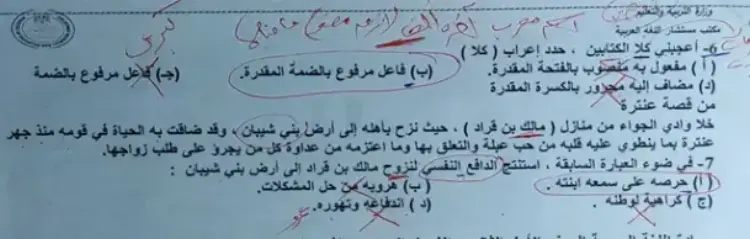 وزارة التربية والتعليم
مكتب مستشار اللغة العربية
اسم معرب آخره ألف لازمة مفتوح ما قبلها
6- أعجبني كلا الكتابين ، حدد إعراب ( كلا )
( أ ) مفعول به منصوب بالفتحة المقدرة. (ب) فاعل مرفوع بالضمة المقدرة. (جـ) فاعل مرفوع بالضمة
(د) مضاف إليه مجرور بالكسرة المقدرة
من قصة عنترة
خلا وادي الجواء من منازل ( مالك بن قراد ) ، حيث نزح بأهله إلى أرض بني شيبان ، وقد ضاقت به الحياة في قومه منذ جهر
عنترة بما ينطوي عليه قلبه من حب عبلة والتعلق بها وما اعتزمه من عداوة كل من يجرؤ على طلب زواجها.
7- في ضوء العبارة السابقة ، استنتج الدافع النفسي لنزوح مالك بن قراد إلى أرض بني شيبان :
( أ ) حرصه على سمعه ابنته . (ب ) هروبه من حل المشكلات.
(ج ) كراهية لوطنه . (د ) اندفاعه وتهوره.